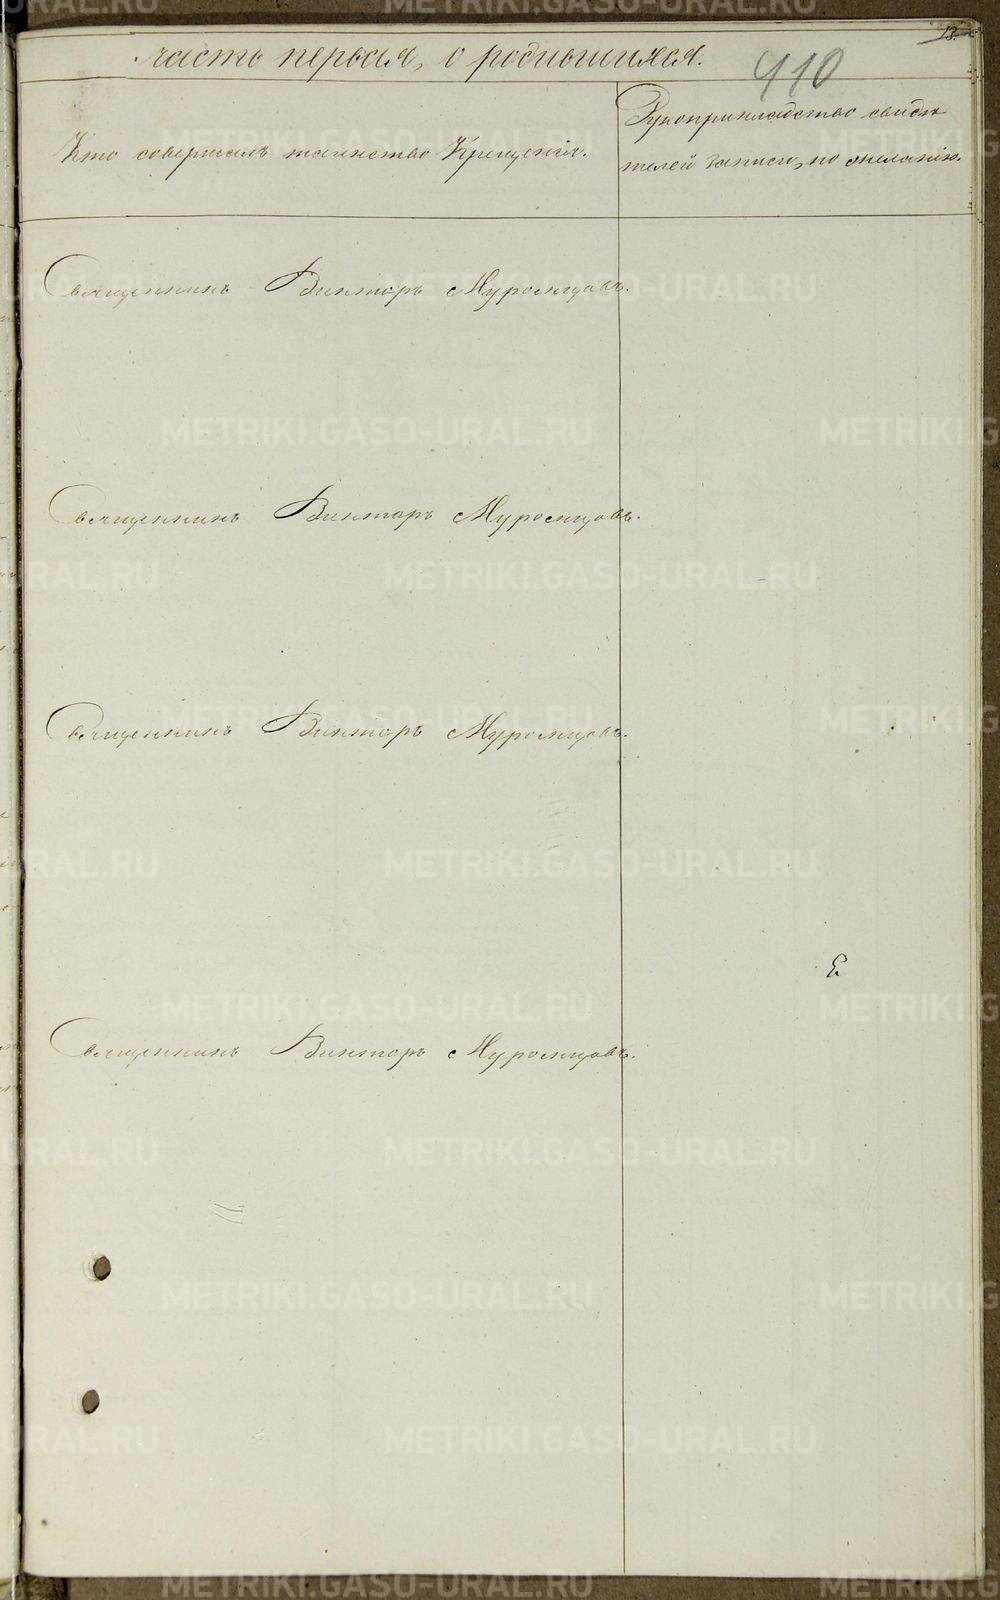 13.
часть первая, о родившихся.
410
Кто совершалъ таинство Крещенія.
Рукоприкладство свидѣ
телей записи, по желанію.
Священникъ Викторъ Муромцовъ.
Священникъ Викторъ Муромцовъ.
Священникъ Викторъ Муромцовъ.
Священникъ Викторъ Муромцовъ.
METRIKI.GASO-URAL.RU